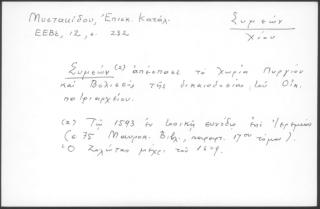 Μυστακίδου, Ἐπισκ. Κατάλ.
ΕΕΒΣ, 12, σ. 232
Συμεών
Χίου
Συμεών (2) ἀπέσπασε τὰ χωρία Πυργίου
καὶ Βολισσοῦ τῆς δικαιοδοσίας τοῦ Οἰκ.
πατριαρχείου.
(2) Τῷ 1593 ἐν συνόδῳ ἐπὶ Ἱερεμίου
(σ 75 Μαυροκ. Βιβλ., παραρτ. 1ου τόμου).
μέχρι τοῦ